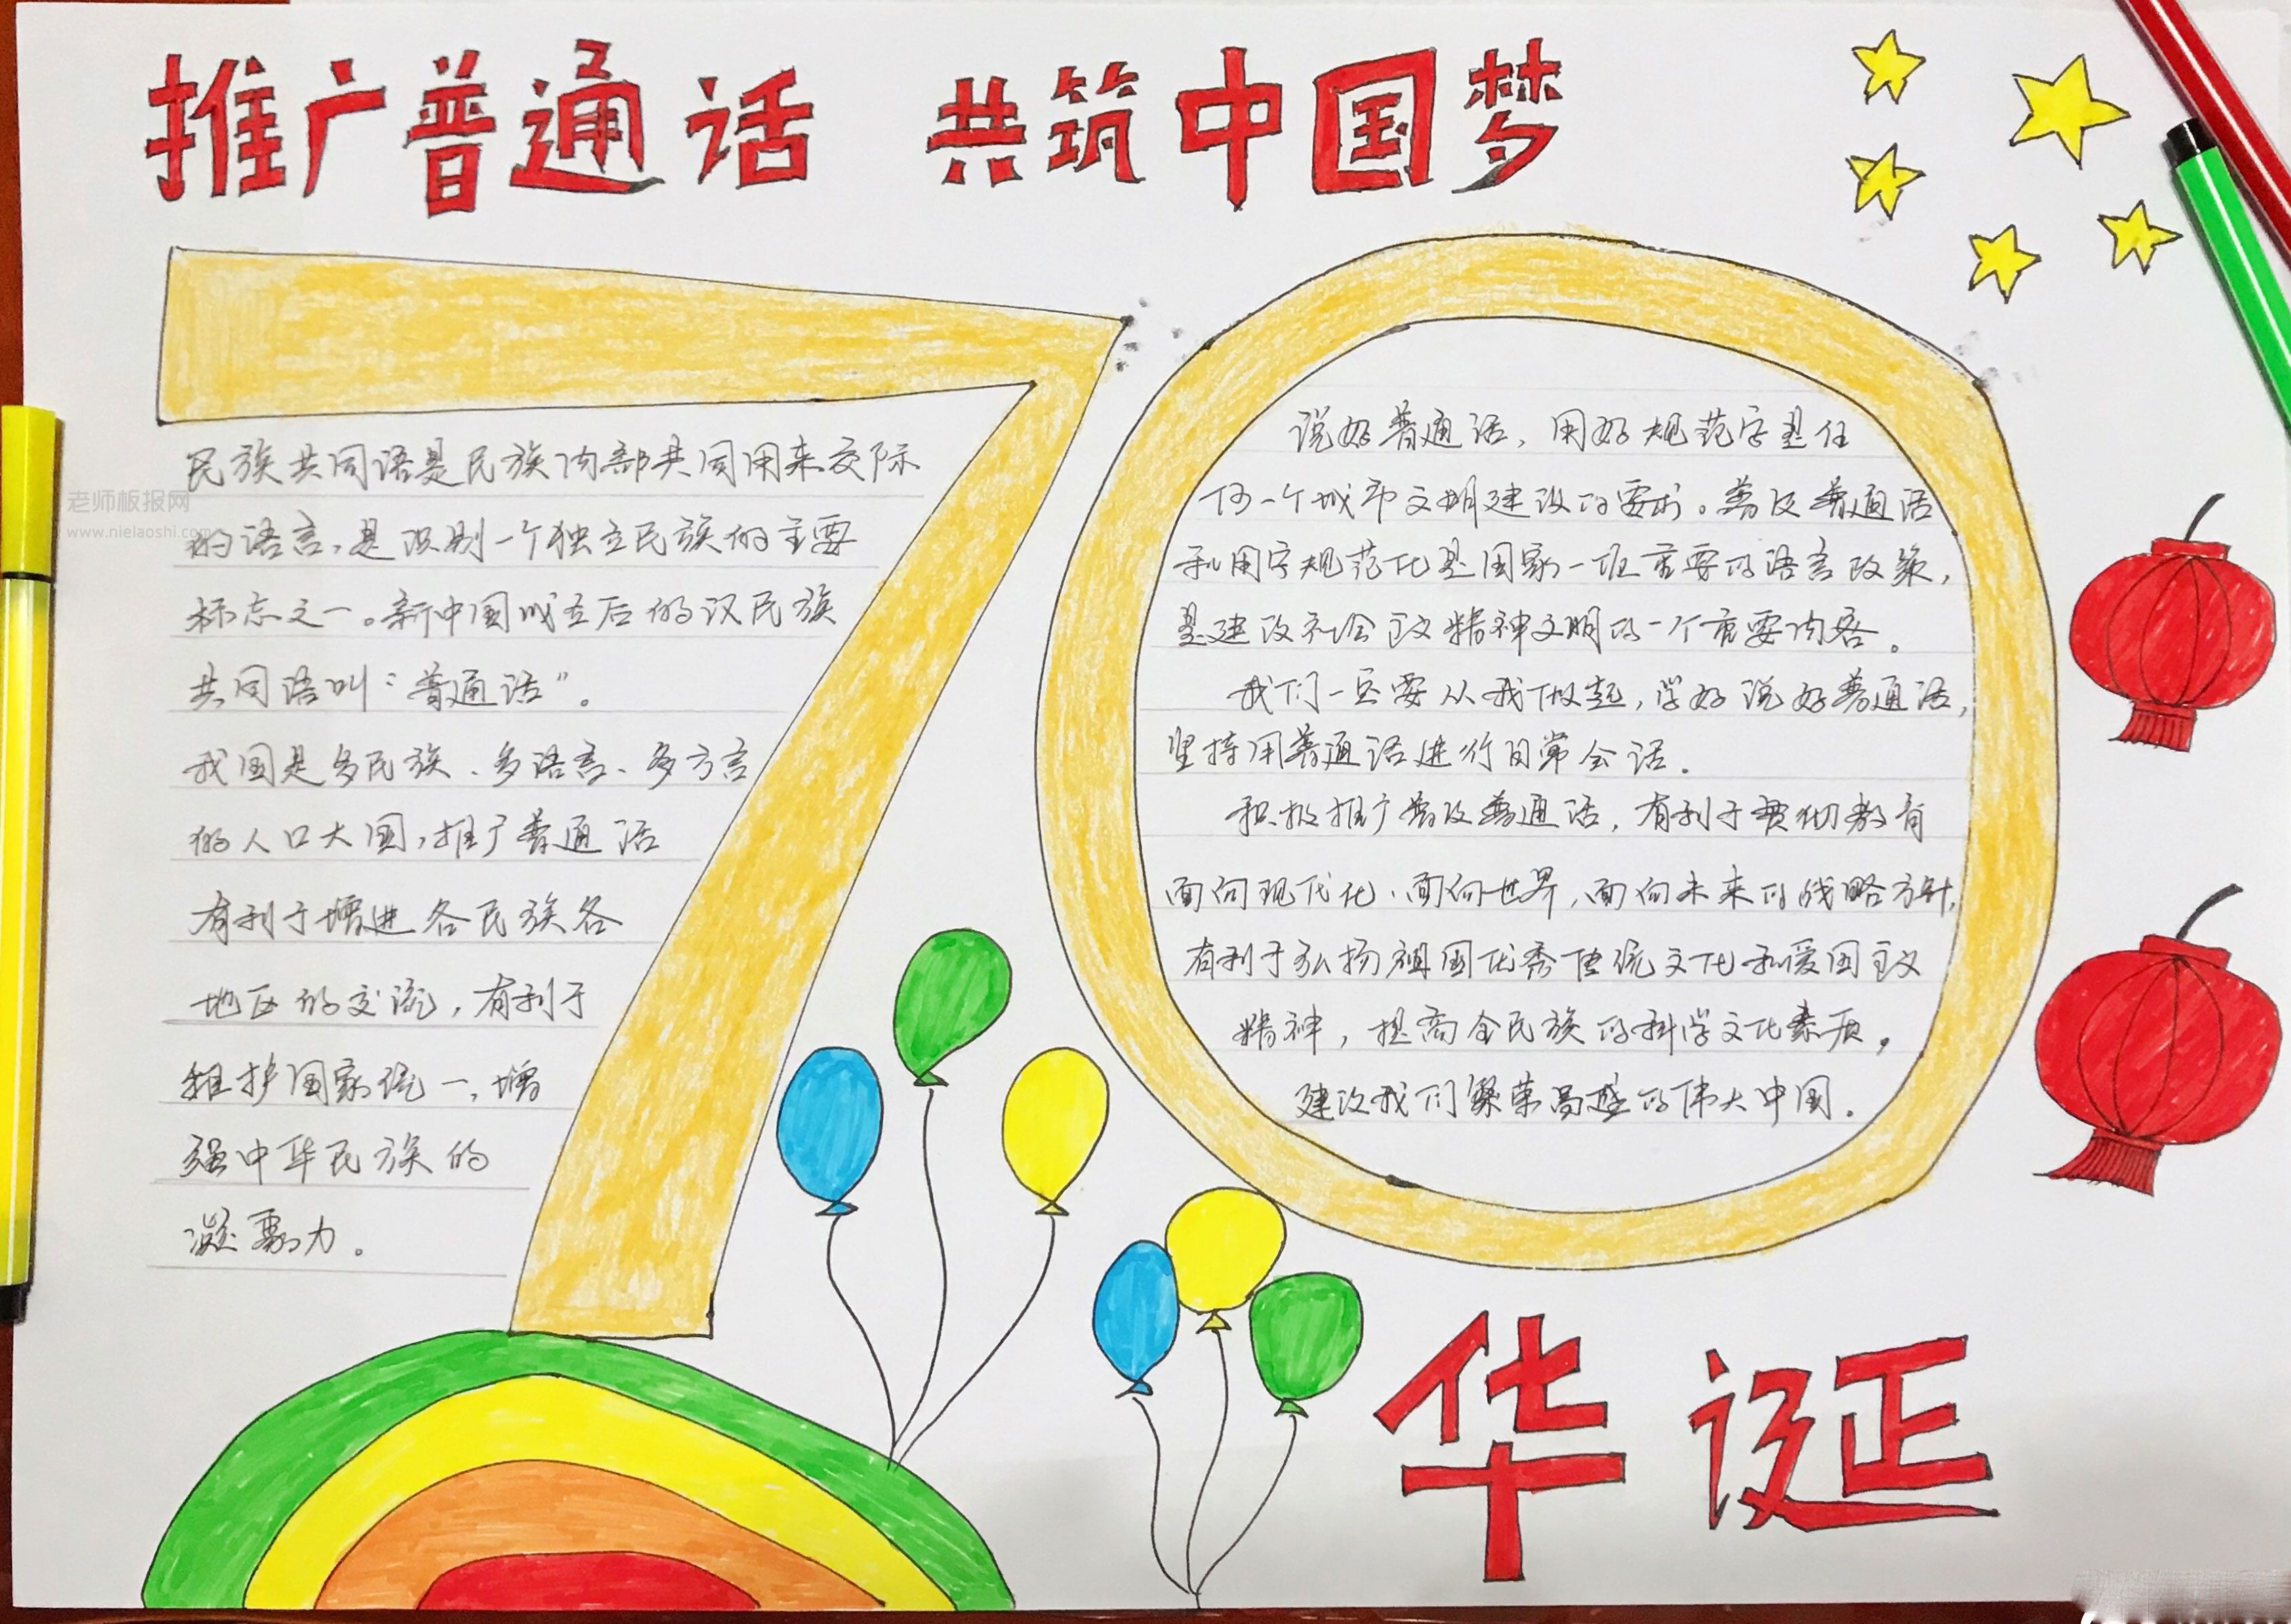 推广普通话 共筑中国梦
民族共同语是民族内部共同用来交际
的语言,是识别一个独立民族的主要
标志之一。新中国成立后的汉民族
共同语叫:“普通话”。
我国是多民族、多语言、多方言
的人口大国,推广普通话
有利于增进各民族各
地区的交流,有利于
维护国家统一,增
强中华民族的
凝聚力。
说好普通话,用好规范字是任
何一个城市文明建设的要求。普及普通话
和用字规范化是国家一项重要的语言政策,
是建设社会主义精神文明的一个重要内容。
我们一定要从我做起,学好说好普通话,
坚持用普通话进行日常会话.
积极推广普及普通话,有利于贯彻教育
面向现代化、面向世界,面向未来的战略方针,
有利于弘扬祖国优秀传统文化和爱国主义
精神,提高全民族的科学文化素质,
建设我们繁荣昌盛的伟大中国.
华诞
老师板报网
www.nielaoshi.com